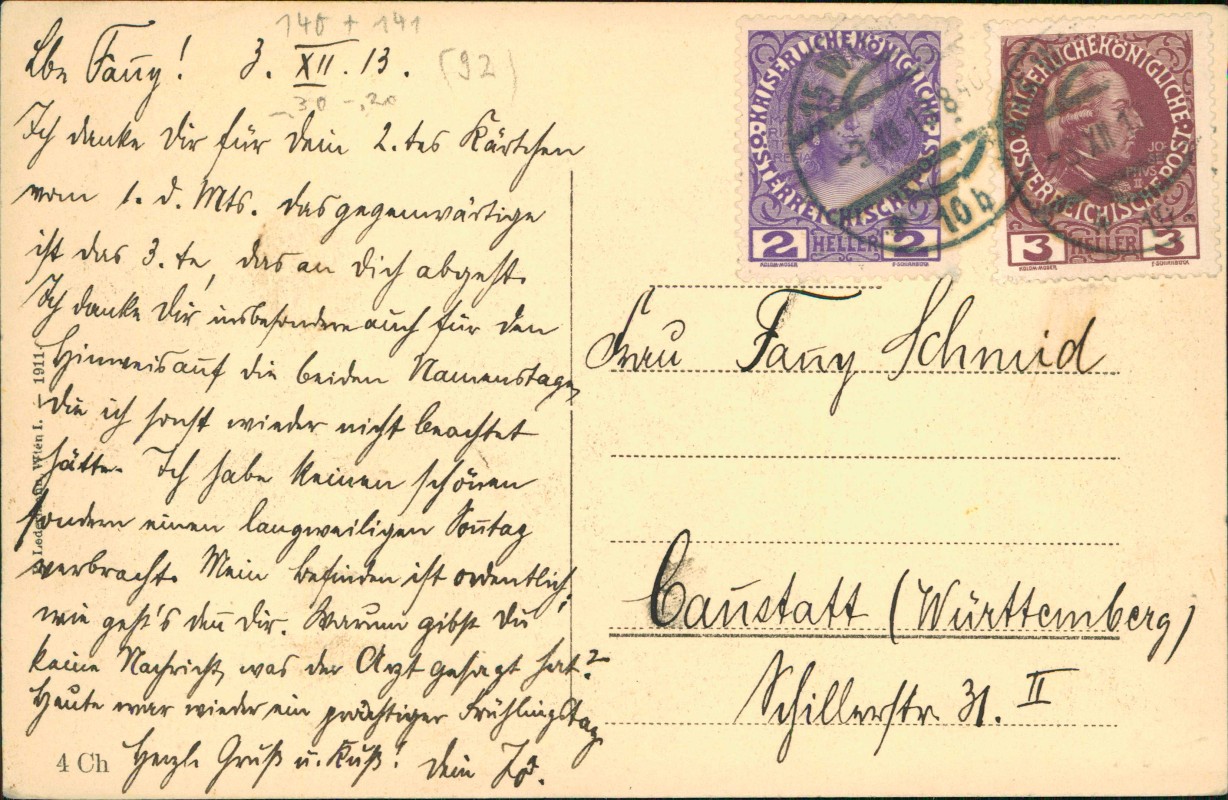 140 + 141
Lbe Fany! 3. XII. 13.
(92)
-.30 -.20
Ich danke Dir für Dein 2.tes Kärtchen
vom 1. d. Mts. das gegenwärtige
ist das 3.te, das an Dich abgeht.
Ich danke Dir insbesondere auch für den
Hinweis auf die beiden Namenstage,
die ich sonst wieder nicht beachtet
hätte. Ich habe keinen schönen
sondern einen langweiligen Soñtag
verbracht. Mein Befinden ist ordentlich,
wie geht's deñ Dir. Warum gibst Du
keine Nachricht, was der Arzt gesagt hat?
Heute war wieder ein prächtiger Frühlingstag.
Herzl. Gruß u. Kuß! Dein
4 Ch
Wien I. – 1911.
KAISERLICHE KÖNIGLICHE ÖSTERREICHISCHE POST
2 HELLER 2
KOLOM·MOSER F·SCHIRNBÖCK
KAISERLICHE KÖNIGLICHE ÖSTERREICHISCHE POST
JOSEPHVS II
3 HELLER 3
KOLOM·MOSER F·SCHIRNBÖCK
Frau Fany Schmid
Cañstatt (Württemberg)
Schillerstr. 31. II